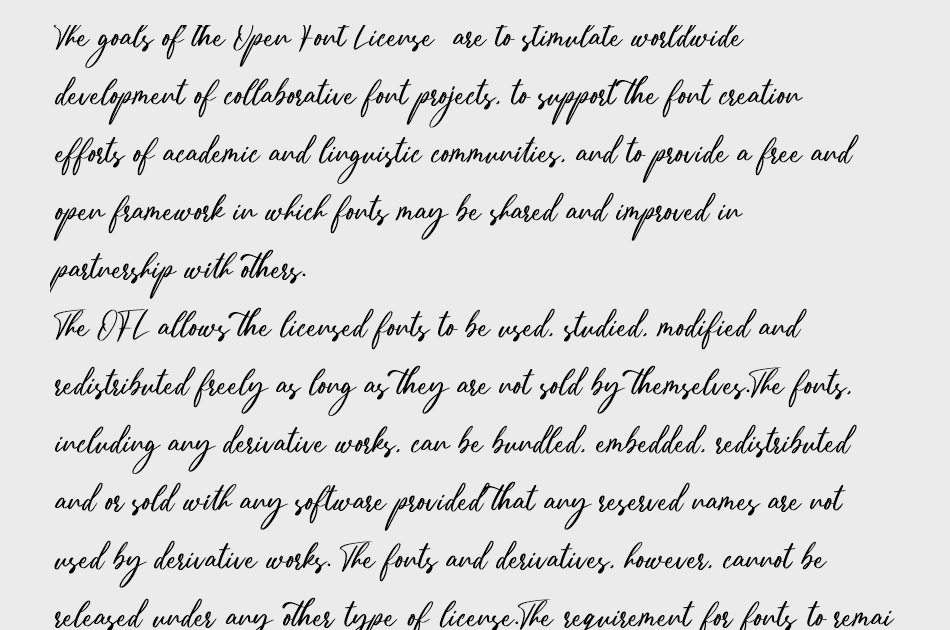 The goals of the Open Font License are to stimulate worldwide
development of collaborative font projects, to support the font creation
efforts of academic and linguistic communities, and to provide a free and
open framework in which fonts may be shared and improved in
partnership with others.
The OFL allows the licensed fonts to be used, studied, modified and
redistributed freely as long as they are not sold by themselves.The fonts,
including any derivative works, can be bundled, embedded, redistributed
and or sold with any software provided that any reserved names are not
used by derivative works. The fonts and derivatives, however, cannot be
released under any other type of license.The requirement for fonts to remai